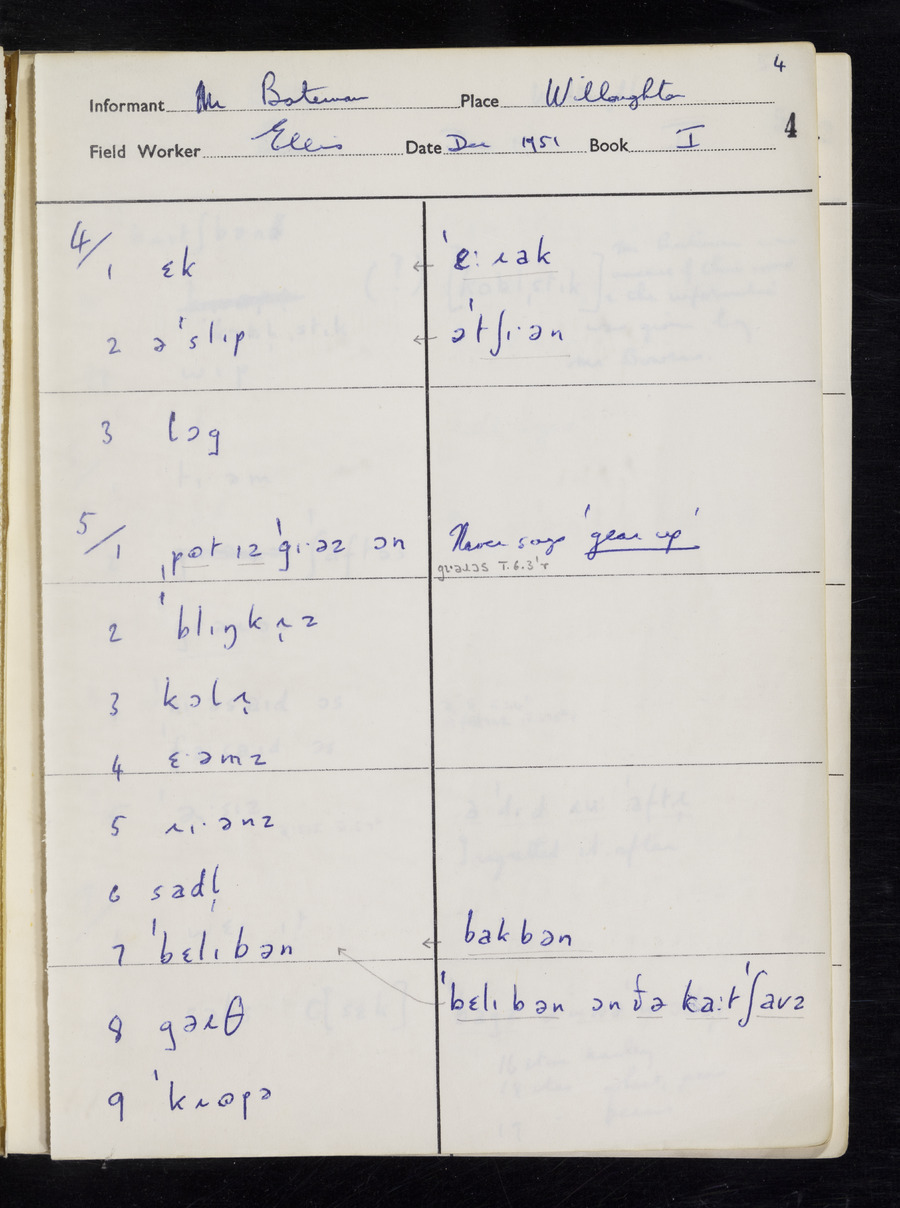 4
Informant Mr Bateman Place Willoughton
4
Field Worker Ellis Date Dec 1951 Book I
4/
1 ɛk ← ˈɛ: ɹak
2 əˈslɪp ← əˈtʃɪ·ən
3 lɔg
5/
1 ˌpɵt ɪz ˈgɪ·əz ɔn Never says 'gear up'
gɪəɹɔs T.6.3'r
2 ˈblɪŋkɹ̩z
3 kɔlɹ̩
4 ɛ·əmz
5 ɹɪ·ənz
6 sadl̩
7 ˈbɛlɪbən ← bakbən
ˈbɛlɪbən ən ðə ka:tˈʃavz
8 gəɹθ
9 ˈkɹɵpə